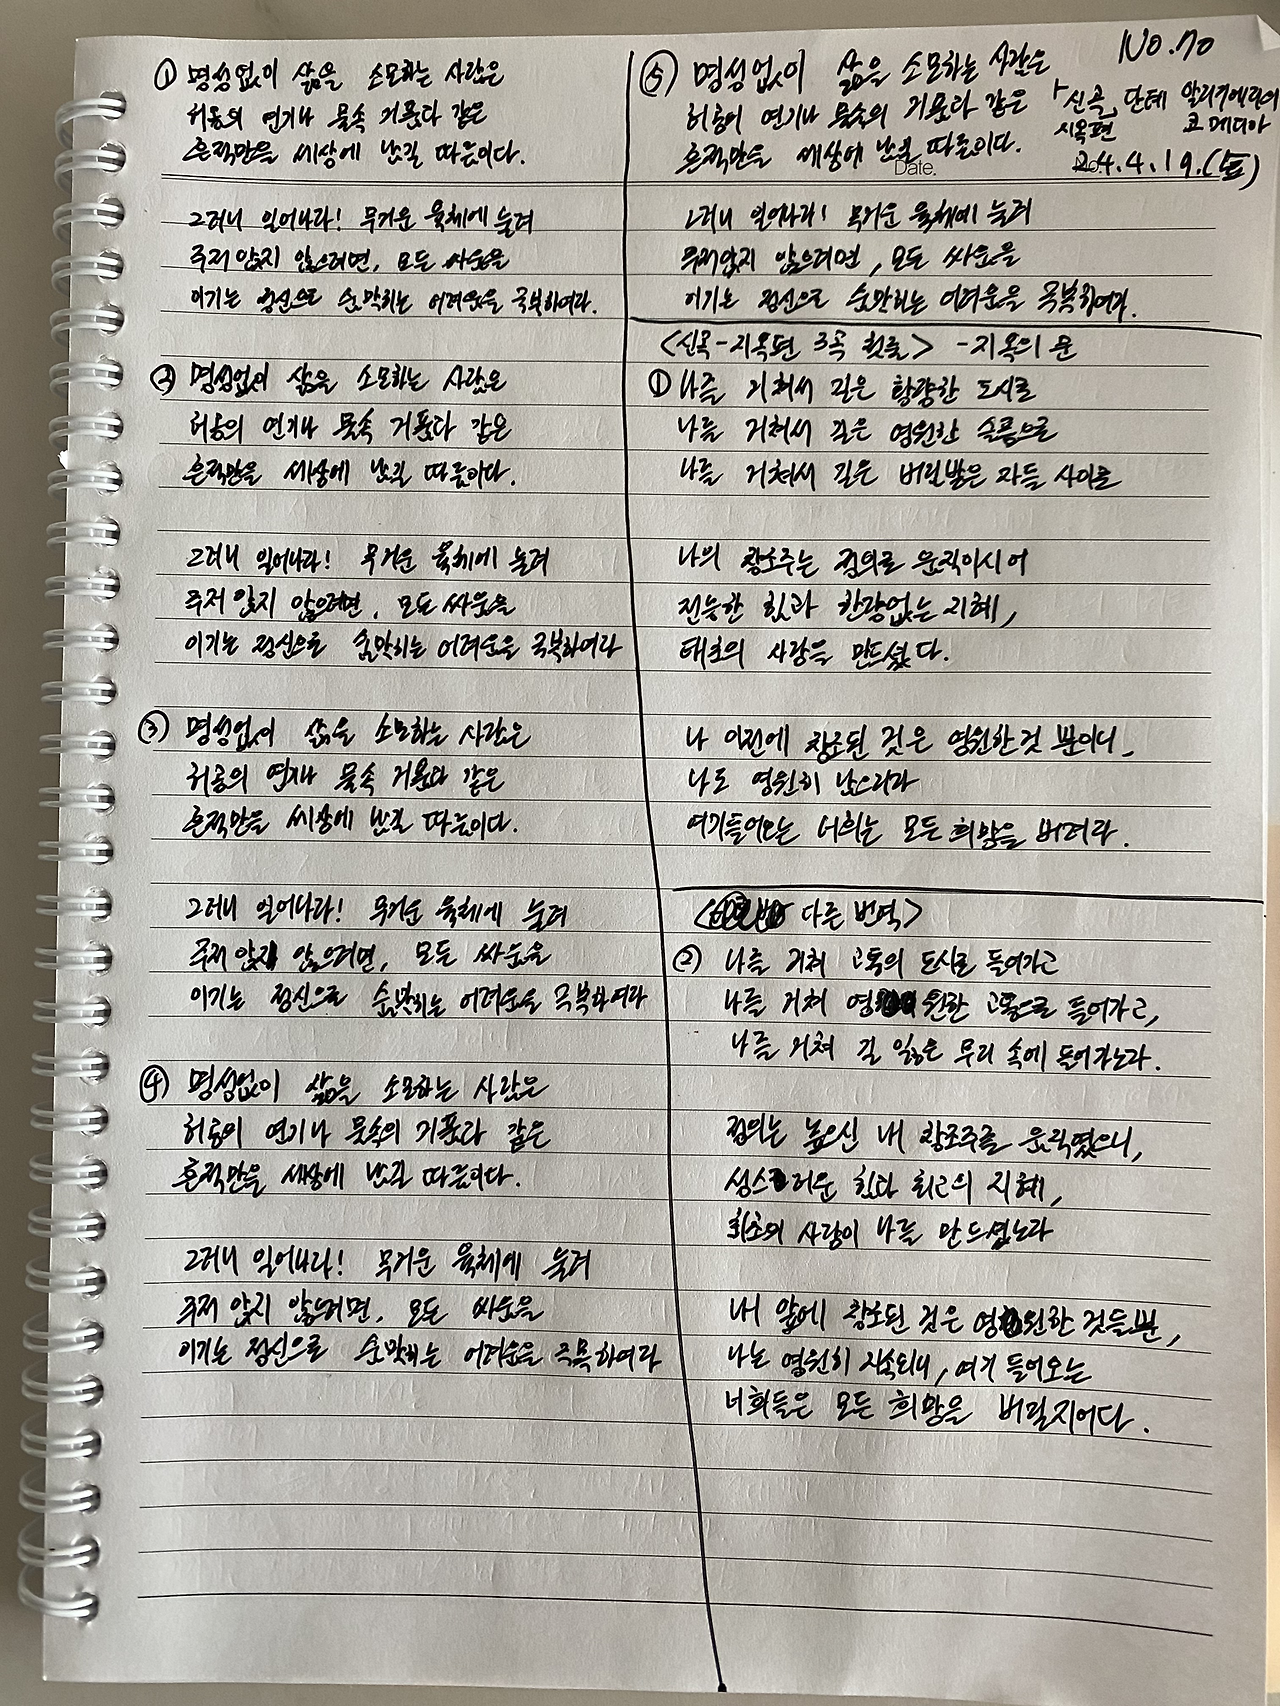 ① 명성없이 삶을 소모하는 사람은
허공의 연기나 물속 거품과 같은
흔적만을 세상에 남길 따름이다.
그러니 일어나라! 무거운 육체에 눌려
주저 앉지 않으려면, 모든 싸움을
이기는 정신으로 숨막히는 어려움을 극복하여라.
② 명성없이 삶을 소모하는 사람은
허공의 연기나 물속 거품과 같은
흔적만을 세상에 남길 따름이다.
그러니 일어나라! 무거운 육체에 눌려
주저 앉지 않으려면, 모든 싸움을
이기는 정신으로 숨막히는 어려움을 극복하여라
③ 명성없이 삶을 소모하는 사람은
허공의 연기나 물속 거품과 같은
흔적만을 세상에 남길 따름이다.
그러니 일어나라! 무거운 육체에 눌려
주저 앉지 않으려면, 모든 싸움을
이기는 정신으로 숨막히는 어려움을 극복하여라
④ 명성없이 삶을 소모하는 사람은
허공의 연기나 물속의 거품과 같은
흔적만을 세상에 남길 따름이다.
그러니 일어나라! 무거운 육체에 눌려
주저 앉지 않으려면, 모든 싸움을
이기는 정신으로 숨막히는 어려움을 극복하여라
No.70
「신곡」 단테 알리기에리의
지옥편 코메디아
24.4.19.(금)
Date.
⑤ 명성없이 삶을 소모하는 사람은
허공의 연기나 물속의 거품과 같은
흔적만을 세상에 남길 따름이다.
그러니 일어나라! 무거운 육체에 눌려
주저앉지 않으려면, 모든 싸움을
이기는 정신으로 숨막히는 어려움을 극복하여라.
<신곡-지옥편 3곡 첫줄> -지옥의 문
① 나를 거쳐서 길은 황량한 도시로
나를 거쳐서 길은 영원한 슬픔으로
나를 거쳐서 길은 버림받은 자들 사이로
나의 창조주는 정의로 움직이시어
전능한 힘과 한량없는 지혜,
태초의 사랑을 만드셨다.
나 이전에 창조된 것은 영원한것 뿐이니,
나도 영원히 남으리라
여기들어오는 너희는 모든 희망을 버려라.
< 다른 번역>
② 나를 거쳐 고통의 도시로 들어가고
나를 거쳐 영원한 고통으로 들어가고,
나를 거쳐 길 잃은 무리 속에 들어가노라.
정의는 높으신 내 창조주를 움직였으니,
성스러운 힘과 최고의 지혜,
최초의 사랑이 나를 만드셨노라
내 앞에 창조된 것은 영원한 것들뿐,
나는 영원히 지속되니, 여기 들어오는
너희들은 모든 희망을 버릴지어다.